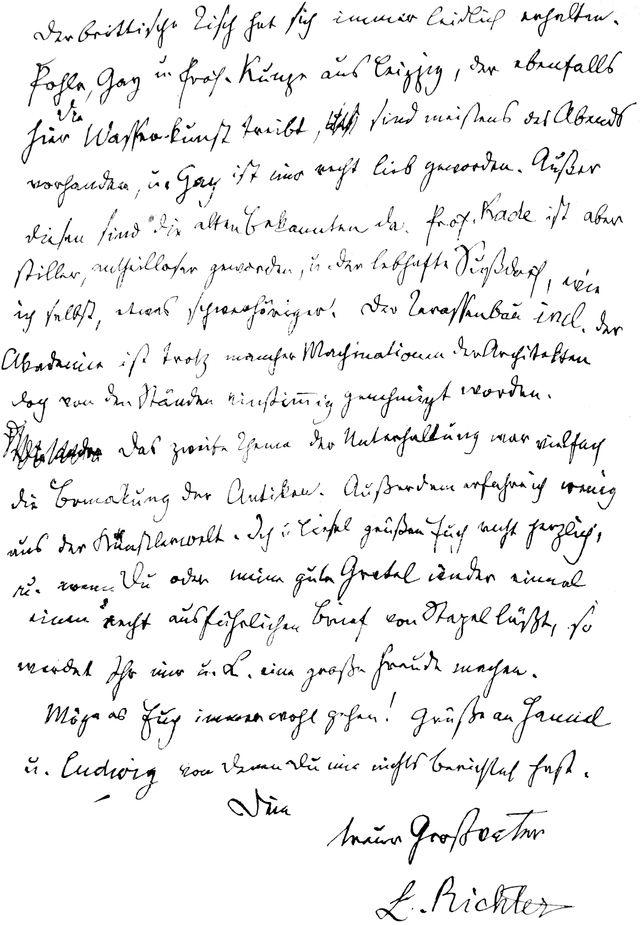 Der brittische Tisch hat sich immer leidlich erhalten.
Pohle, Gay u Prof. Kunze aus Leipzig, der ebenfalls
hier die Wasserkunst treibt, sind meistens des Abends
vorhanden, u. Gay ist mir recht lieb geworden. Außer
diesen sind die alten Bekannten da. Prof. Kade ist aber
stiller, antheilloser geworden, u. der lebhafte Sußdorf, wie
ich selbst, etwas schwerhöriger. Der Terassenbau incl. der
Akademie ist trotz mancher Machinationen der Architekten
doch von den Ständen einstimmig genehmigt worden.
Das zweite Thema der Unterhaltung war vielfach
die Bemalung der Antiken. Außerdem erfahre ich wenig
aus der Künstlerwelt. Ich u Liesel grüßen Euch recht herzlich,
u. wenn Du oder meine gute Gretel wieder einmal
einen recht ausführlichen Brief von Stapel läßt, so
werdet Ihr mir u. L. eine große Freude machen.
Möge es Euch immer wohl gehen! Grüße an
u. Ludwig von denen Du mir nichts berichtet hast.
Dein
treuer Großvater
L. Richter